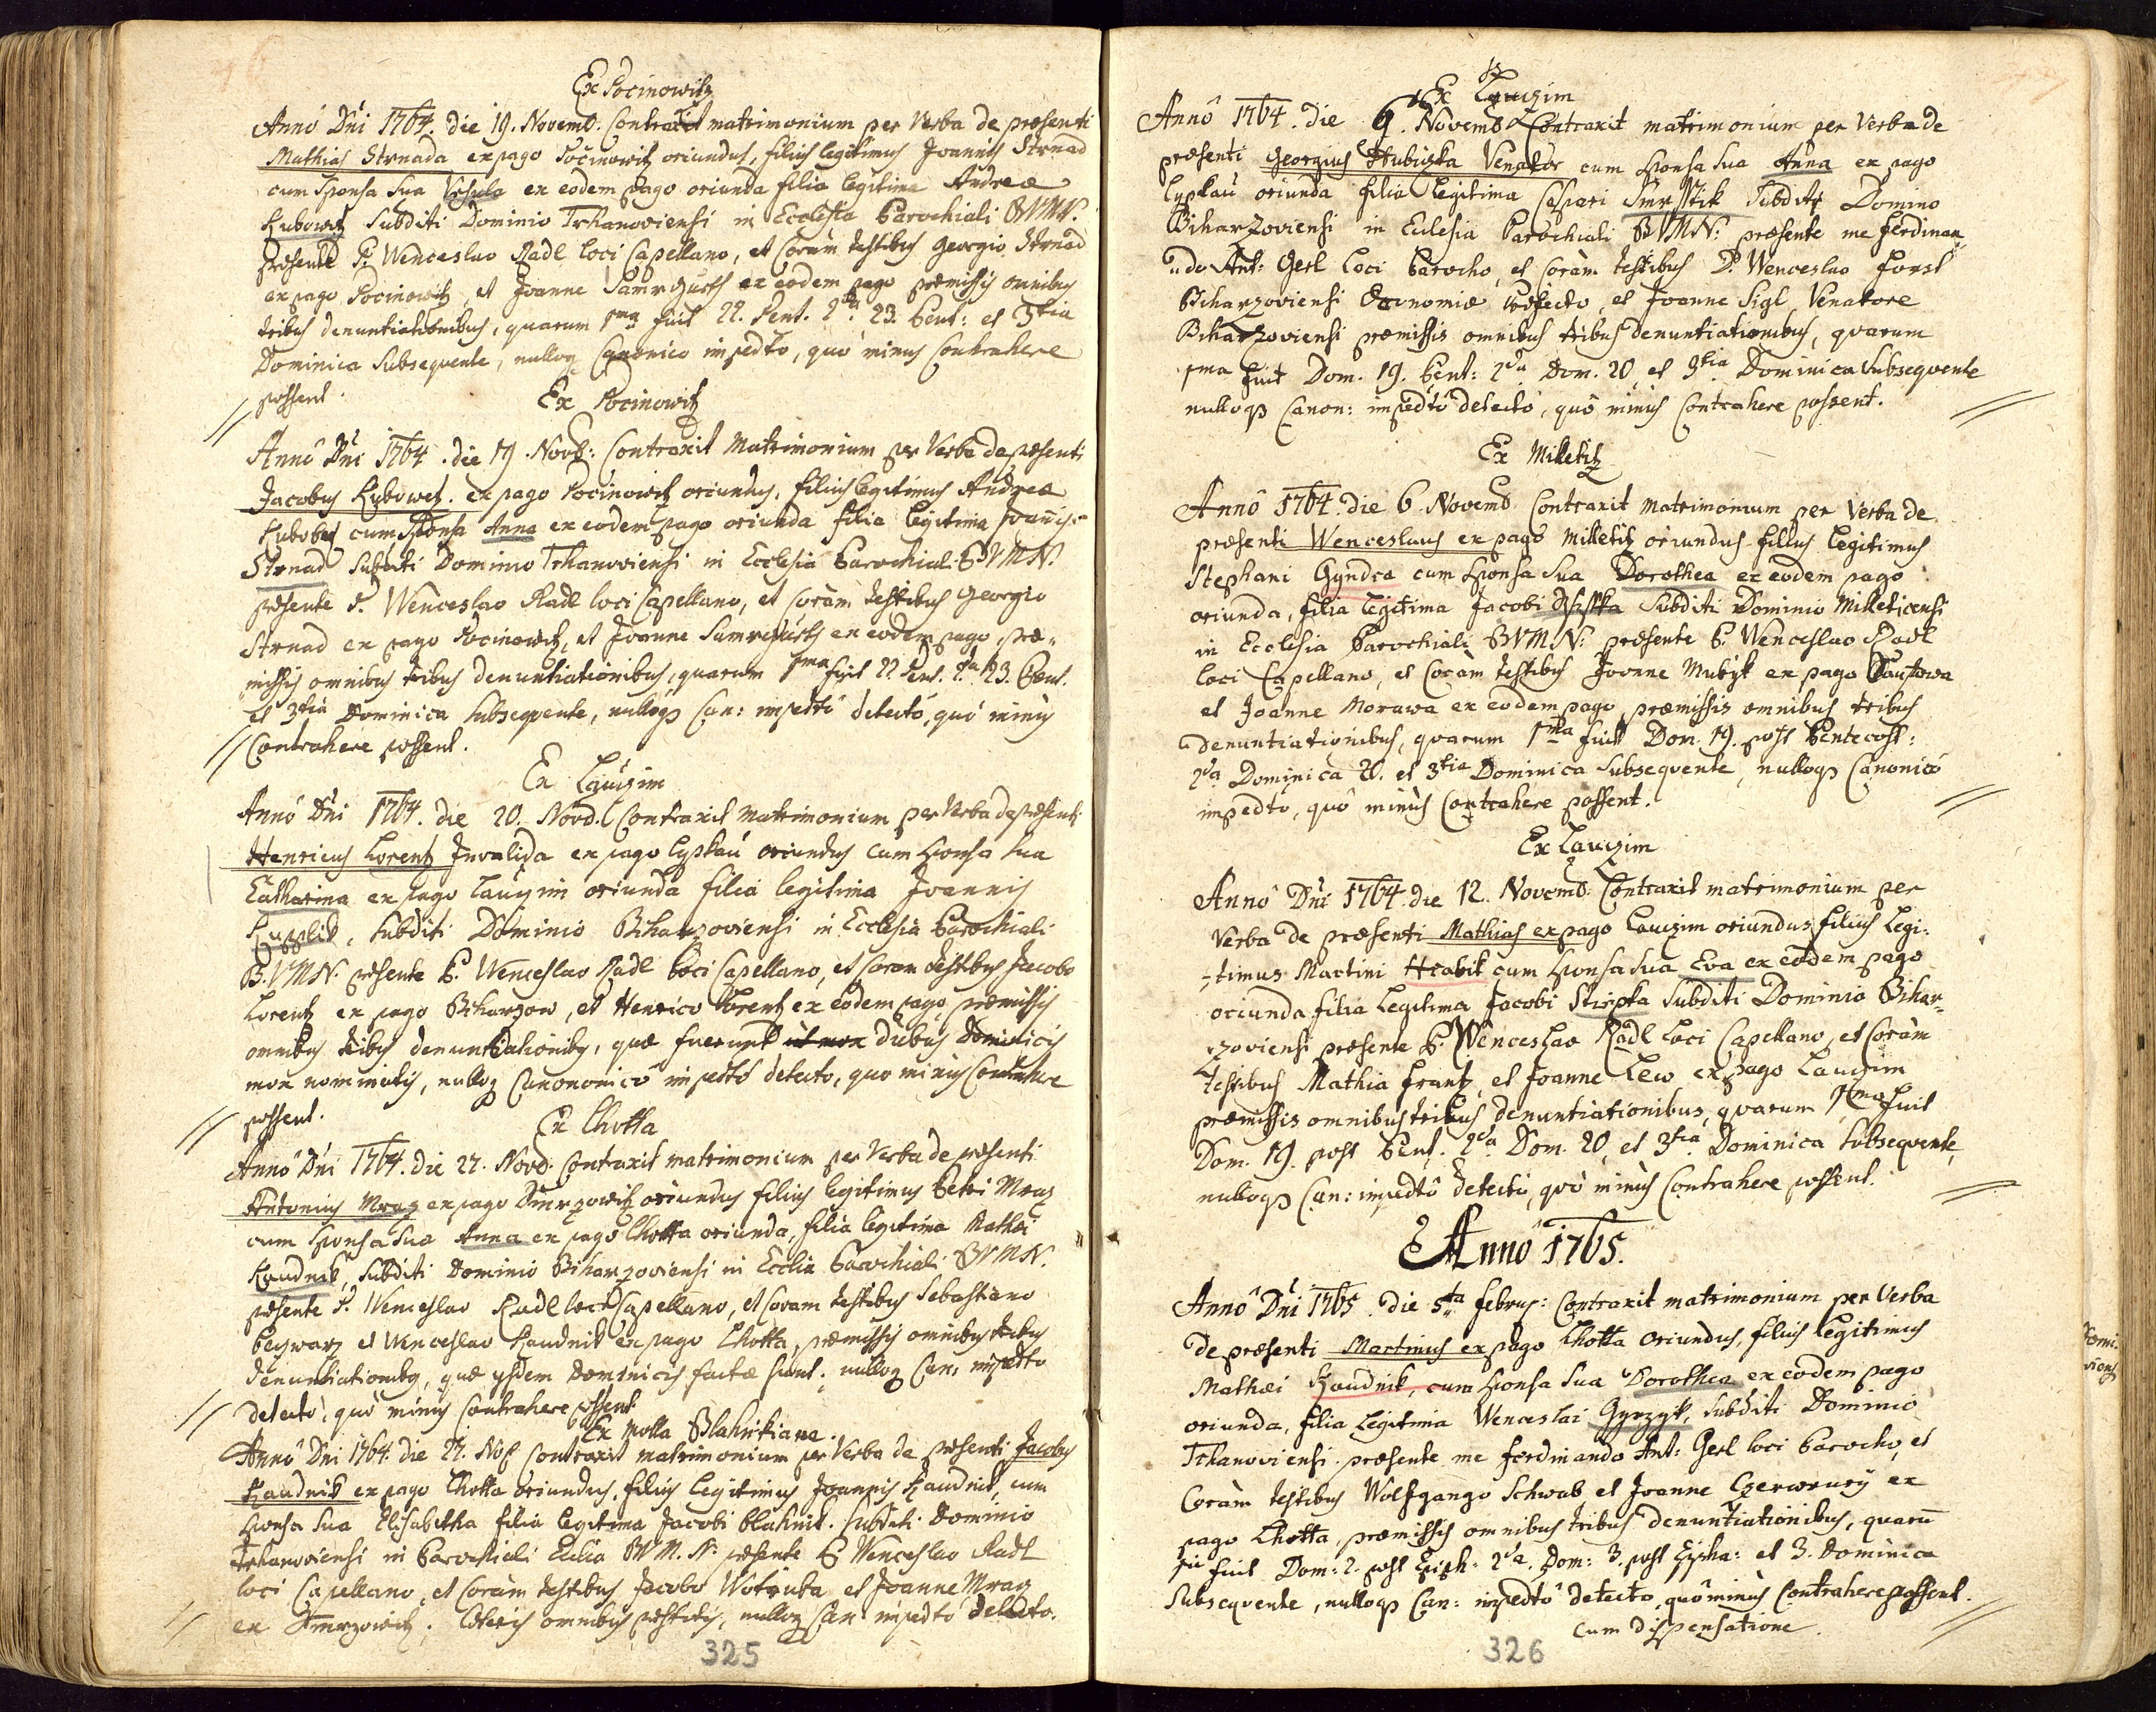 Ex Pocinowitz
Annô Dni 1764. die 19. Novemb. Contraxit matrimonium per Verba de præsenti
Mathias Strnada ex pago Pocinowitz oriundus, filius legitimus Joannis Strnad
cum sponsa sua Ursula ex eodem pago oriunda filia legitima Andreæ
Kubowetz subditi Dominio Trhanoviensi in Ecclesia Parochiali BVMN.
præsente P. Wenceslao Radl loci Capellano, et coràm testibus Georgio Strnad
ex pago Pocinowitz, et Joanne ex eodem pago præmissis omnibus
tribus denuntiationibus, quarum 1ma fuit 22. Pent. 2da 23. Pent: et 3tia
Dominica subsequente, nulloq Canonico impedto, quô minus Contrahere
possent.
Ex Pocinowitz
Annô Dni 1764. die 19. Novb: Contraxit Matrimonium per Verba de præsenti
Jacobus Kubowetz. ex pago Pocinowitz oriundus, filius legitimus Andreæ
cum sponsa Anna ex eodem pago oriunda filia legitima Joannis
Strnad subditi Dominio Trhanoviensi in Ecclesia Parochiali BVMN.
præsente P. Wenceslao Radl loci Capellano, et coràm testibus Georgio
Strnad ex pago Pocinowitz, et Joanne ex eodem pago, præ-
missis omnibus tribus denuntiationibus, quarum 1ma fuit 22 Pent. 2da 23. Pent.
et 3tia Dominica subsequente, nulloqs Can: impedtô detectô, quô minùs
Contrahere possent.
Ex Lauzim
Annô Dni 1764. die 20. Novb. Contraxit matrimonium per Verba de præsenti
Henricus Lorentz Invalida ex pago Lypkau oriundus cum sponsa sua
Catharina ex pago Lauzim oriunda filia legitima Joannis
subditi Dominio Biharzoviensi in Ecclesia Parochiali
B.VMN. præsente P. Wenceslao Radl loci Capellano, et coram testibus Jacobo
Lorentz ex pago Biharzow, et Henrico Lorentz ex eodem pago, præmissis
omnibus tribus denuntiationibus, quæ fuerunt ut mox diebus Dominicis
mox nominatis, nulloq Canononicô impedtô detecto, quo minus Contrahere
possent.
Ex Lhotta
Annô Dni 1764. die 27. Novb. Contraxit matrimonium per Verba de præsenti
Antonius Mraz ex pago Smrzowitz oriundus filius legitimus Petri Mraz
cum sponsa sua Anna ex pago Lhotta oriunda, filia legitima Mathæi
Kaudnik, subditi Dominio Biharzoviensi in Ecclia Parochiali BVMN.
præsente P. Wenceslao Radl loci Capellano, et coram testibus Sebastiano
et Wenceslao Kaudnik ex pago Lhotta, præmissis omnibus tribus
denuntiationibus, quæ ijsdem Dominicis factæ sunt, nulloq Can: impedto
detectô, quô minùs contrahere possent
Ex Molla Blahnikiana.
Annô Dni 1764. die 27. contraxit matrimonium per Verba de præsenti Jacobus
Kaudnik ex pago Lhotta oriundus, filius Legitimus Joannis Kaudnik, cum
sponsa sua Elisabetha filia legitima Jacobi blahnik. subditi Dominio
Trhanoviensi in Parochiali Ecclia BVM.N. præsente P Wenceslao Radl
loci Capellano, et coràm testibus Jacobo Wotruba et Joanne Mraz
ex Smrzowitz, cæteris omnibus præstitis, nulloq Can impedtô detecto.
325
Ex Lauzim
Annô 1764. die 6. Novemb Contraxit matrimonium per Verba de
præsenti Georgius Hubiczka Venator cum sponsa sua Anna ex pago
Lypkau oriunda filia legitima Caspari subditi Domino
Biharzoviensi in Eclesia Parochiali BVMN: præsente me Ferdinan
ndo Ant: Gerl loci Parocho, et coràm testibus D. Wenceslao Forst
Biharzoviensi Œconomiæ Præfecto, et Joanne Sigl, Venatore
Biharzoviensi præmissis omnibus tribus denuntiationibus, quarum
1ma fuit Dom. 19. Pent: 2da Dom. 20, et 3tia Dominica subsequente
nulloqs Canon: impedtô detectô, quô minùs Contrahere possent.
Ex Milletitz
Annô 1764. die 6 Novemb Contraxit matrimonium per Verba de
præsenti Wenceslaus ex pago Milletitz oriundus filius legitimus
Stephani Gyndra cum sponsa sua Dorothea ex eodem pago
oriunda, filia legitima Jacobi subditi Dominio Milleticensi
in Ecclesia Parochiali BVMN: præsente P. Wenceslao Radl
loci Capellano, et coràm testibus Joanne ex pago
et Joanne Morawa ex eodem pago, præmissis omnibus tribus
denuntiationibus, quarum 1ma fuit Dom. 19. post Pentecost:
2da Dominica 20. et 3tia Dominica subsequente, nulloqs Canonicô
impedto, quô minùs Contrahere possent.
Ex Lauzim
Annô Dni 1764. die 12. Novemb. Contraxit matrimonium per
Verba de præsenti Mathias ex pago Lauzim oriundus filius Legi-
-timus Martini Hrabik cum sponsa sua Eva ex eodem pago
oriunda filia Legitima Jacobi Stipka subditi Dominio Bihar-
zoviensi præsente P. Wenceslao Radl loci Capellano, et coràm
testibus Mathia Frantz, et Joanne Lew, ex pago Lauzim
præmissis omnibus tribus denuntiationibus, quarum 1ma fuit
Dom. 19. post Pent. 2da Dom. 20, et 3tia Dominica subsequente,
nulloqs Can: impedtô detectô, quô minùs Contrahere possent.
Annô 1765.
Annô Dni 1765. die 5ta februs: Contraxit matrimonium per Verba
de præsenti Martinus ex pago Lhotta oriundus, filius legitimus
Mathæi Kaudnik, cum sponsa sua Dorothea ex eodem pago
oriunda, filia Legitima Wenceslai subditi Dominio
Trhanoviensi. præsente me ferdinando Ant: Gerl loci Parocho, et
Coràm testibus Wolfgango Schwab et Joanne Czerweny ex
pago Lhotta, præmissis omnibus tribus denuntiationibus, quarū
fuit Dom: 2. post Epiph: 2da. Dom: 3. post Epiha: et 3. Dominica
Subsequente, nulloqs Can: impedtô detecto, quô minùs Contrahere possent.
cum dispensatione.
326